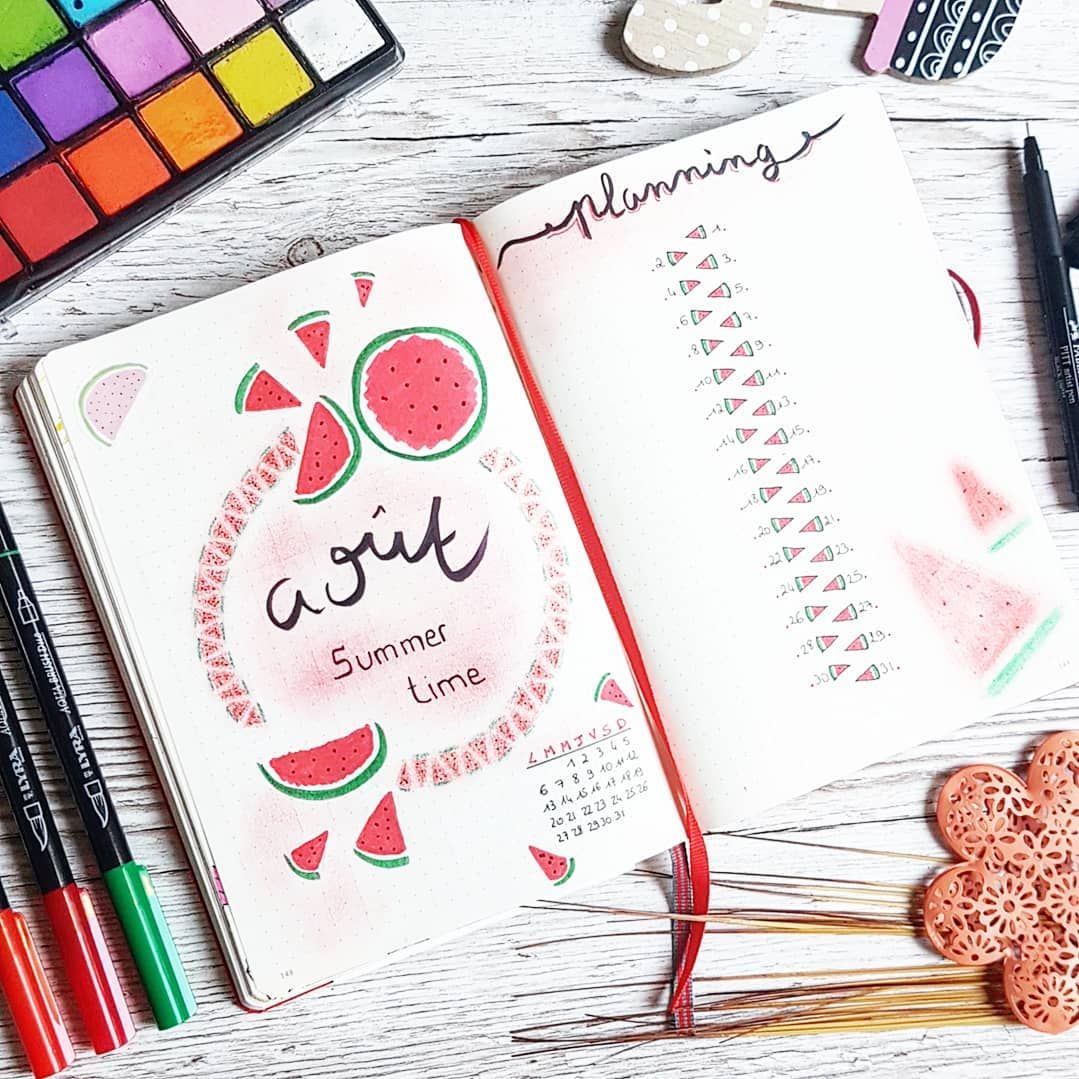 août
Summer
time
L M M J V S D
1 2 3 4 5
6 7 8 9 10 11 12
13 14 15 16 17 18 19
20 21 22 23 24 25 26
27 28 29 30 31
planning
1.
.2 3.
.4 5.
.6 7.
.8 9.
.10 11.
.12 13.
.14 15.
.16 17.
.18 19.
.20 21.
.22 23.
.24 25.
.26 27.
.28 29.
.30 31.
LYRA AQUA BRUSH DUO
LYRA
PITT artist pen